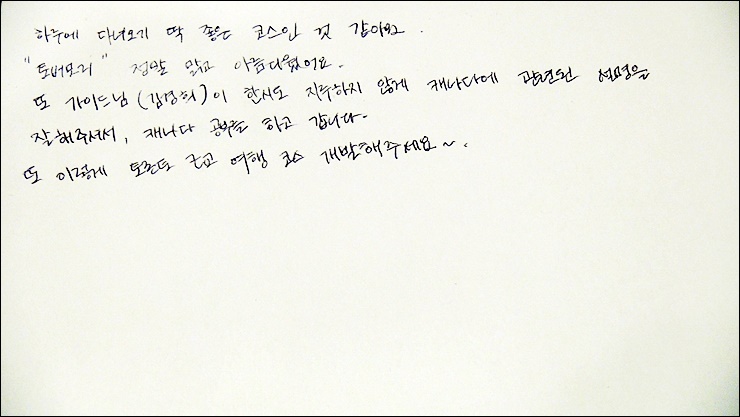 하루에 다녀오기 딱 좋은 코스인 것 같아요.
"토버모리" 정말 맑고 아름다웠어요.
또 가이드님(김경희)이 한시도 지루하지 않게 캐나다에 관련된 설명을
잘해주셔서, 캐나다 공부를 하고 갑니다.
또 이렇게 토론토 근교 여행 코스 개발해주세요~.